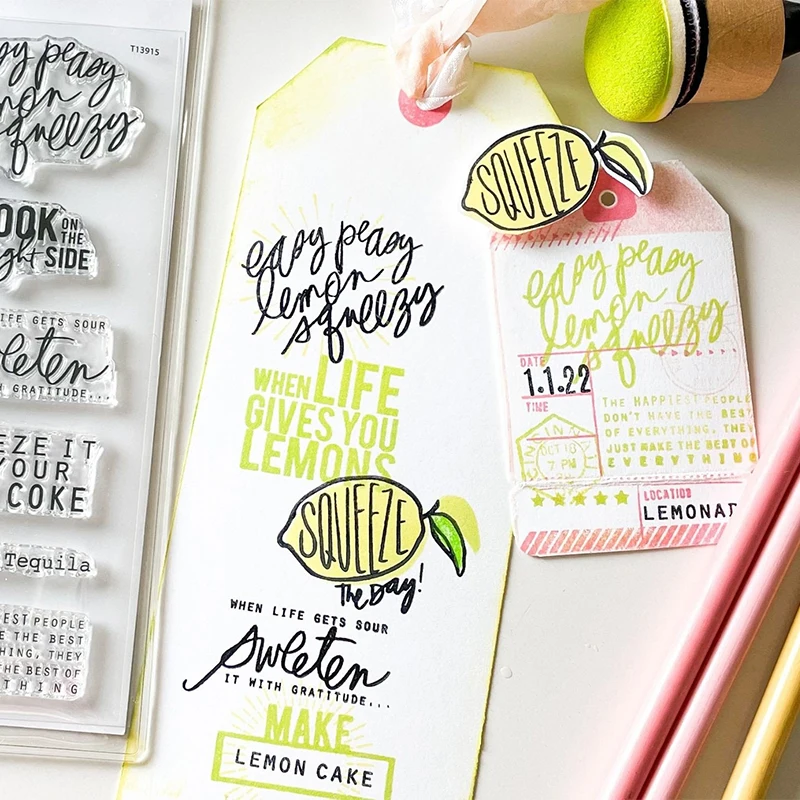 T13915
peasy
lemon
squeezy
OOK ON
THE
ght SIDE
IFE GETS SOUR
eeten
GRATITUDE...
EZE IT
YOUR
COKE
Tequila
PEOPLE
THE BEST
THING, THEY
THE BEST OF
THING
easy peasy
lemon
squeezy
WHEN LIFE
GIVES YOU
LEMONS
SQUEEZE
The Day!
WHEN LIFE GETS SOUR
sweeten
IT WITH GRATITUDE...
MAKE
LEMON CAKE
SQUEEZE
easy peasy
lemon
squeezy
DATE
1.1.22
TIME
7 PM
THE HAPPIEST PEOPLE
DON'T HAVE THE BEST
OF EVERYTHING, THEY
JUST MAKE THE BEST OF
EVERYTHING
LOCATION
LEMONAD